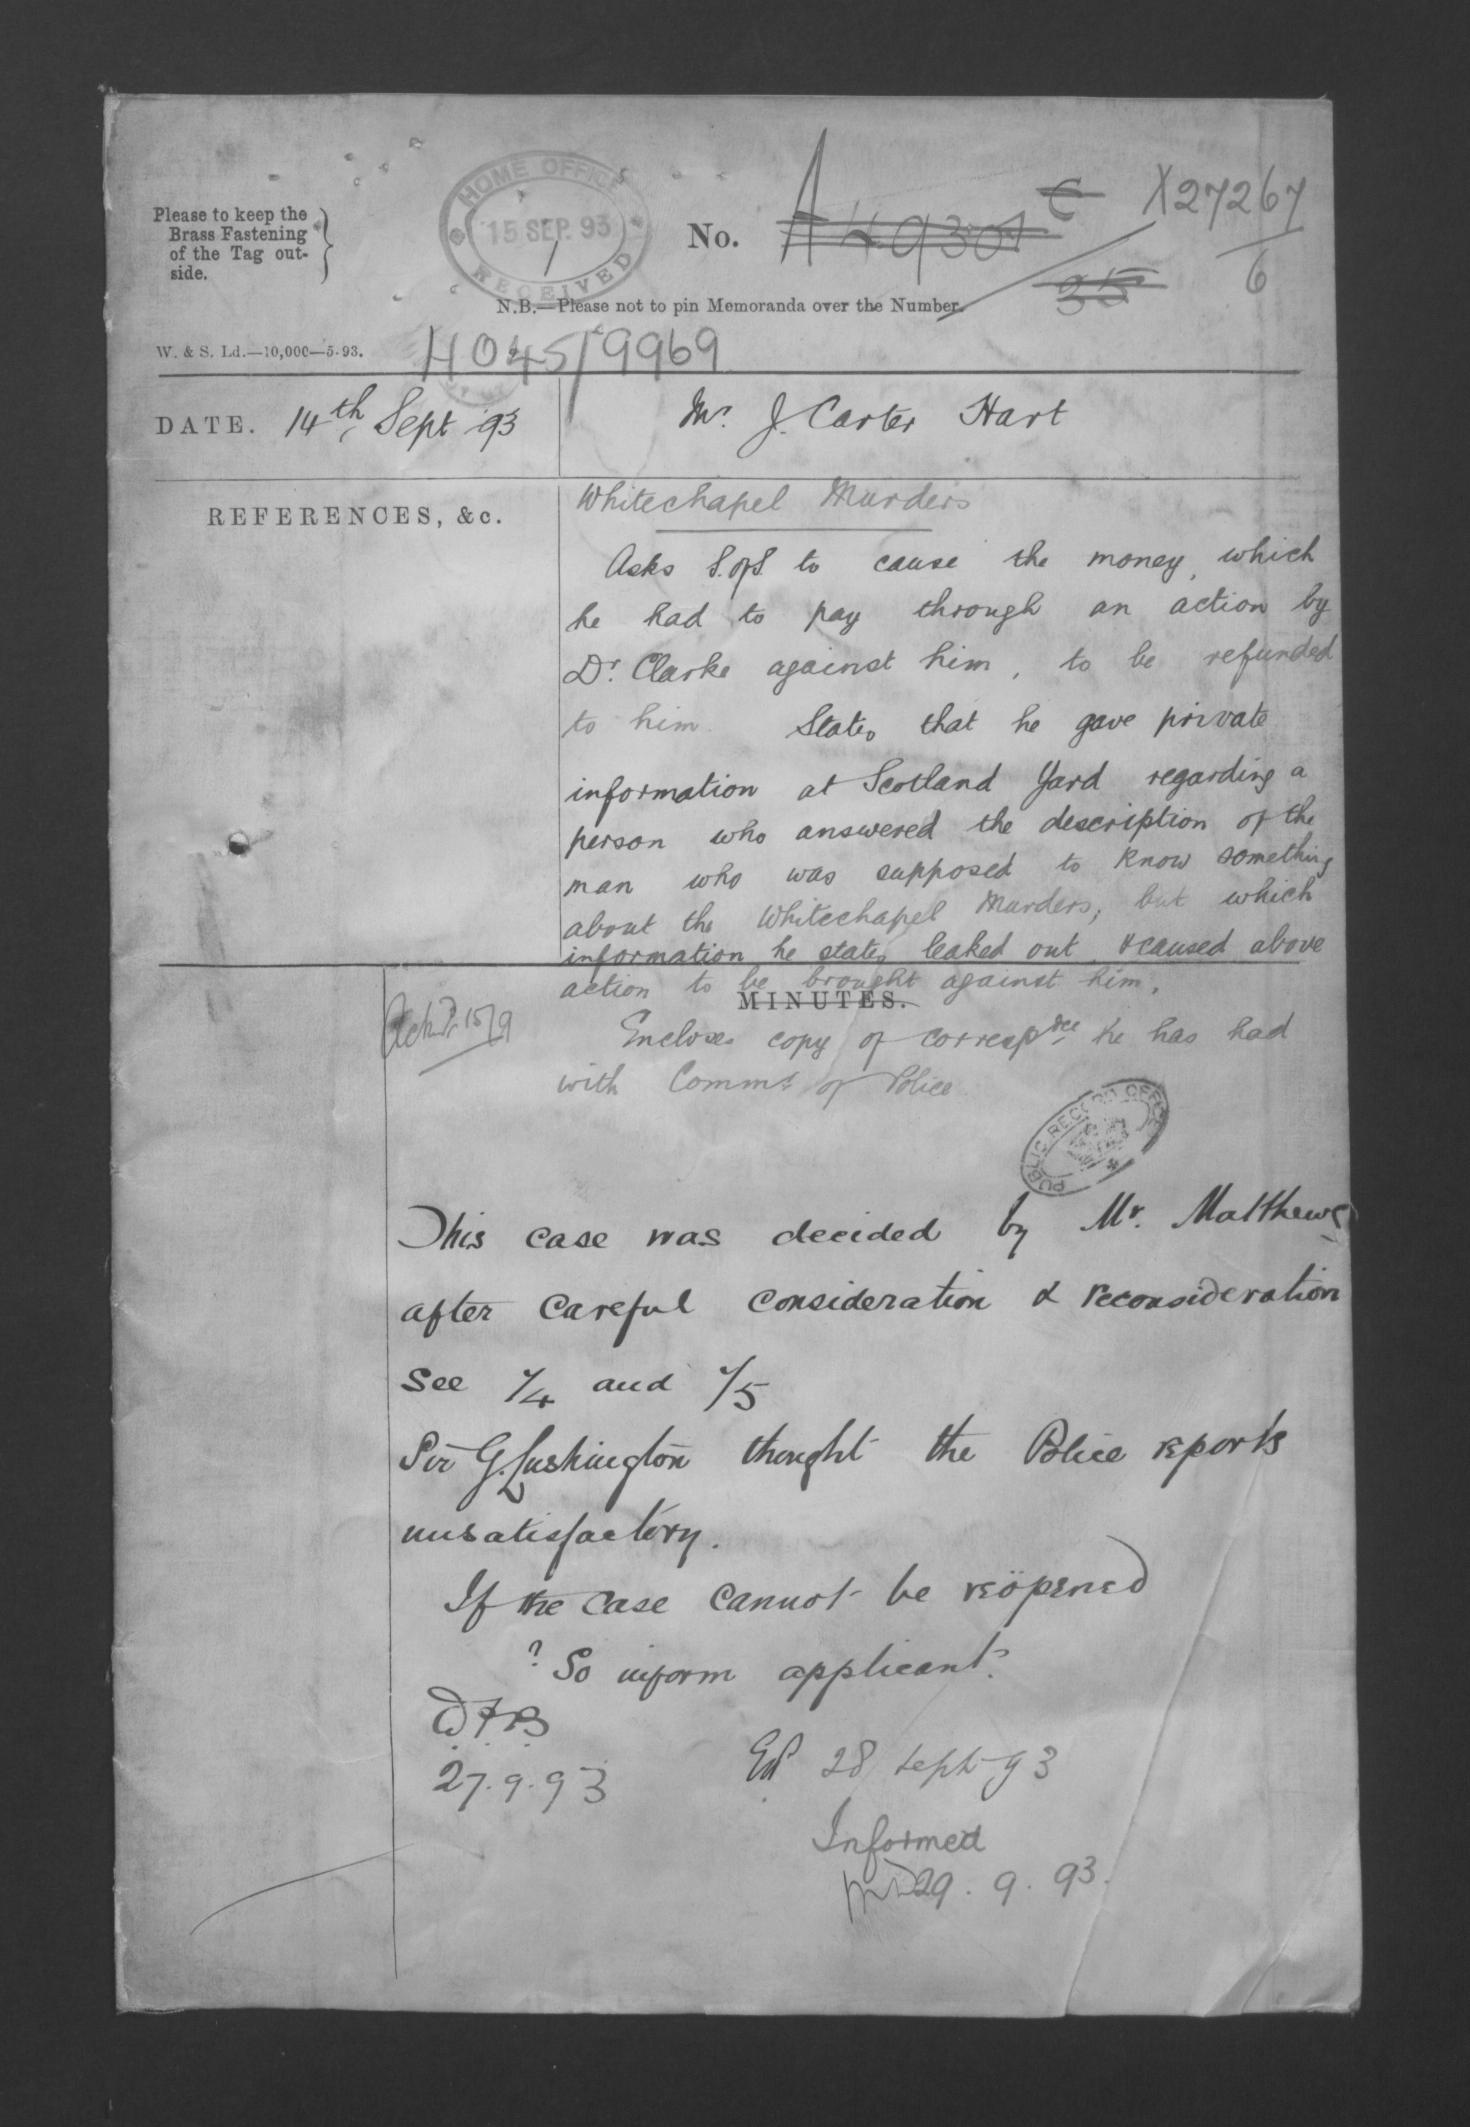 Please to keep the
Brass Fastening
of the Tag out-
side.
HOME OFFICE
15 SEP. 93
RECEIVED
No. A49301 C
35
X27267
6
N.B.—Please not to pin Memoranda over the Number.
W. & S. Ld.—10,000—5-93.
HO45/9969
DATE. 14th Sept 93
Mr. J. Carter Hart
REFERENCES, &c.
Whitechapel Murders
Asks S. of S. to cause the money, which
he had to pay through an action by
Dr. Clarke against him, to be refunded
to him. States that he gave private
information at Scotland Yard regarding a
person who answered the description of the
man who was supposed to know something
about the Whitechapel Murders, but which
information he states leaked out & caused above
action to be brought against him.
MINUTES.
Ackd 15/9
Encloses copy of correspdce he has had
with Commr of Police
PUBLIC RECORD OFFICE
This case was decided by Mr. Matthews
after careful consideration & reconsideration
See /4 and /5
Sir G. Lushington thought the Police reports
unsatisfactory.
If the case cannot be reöpened
? So inform applicant.
27.9.93
28 Sept 93
Informed
29.9.93.